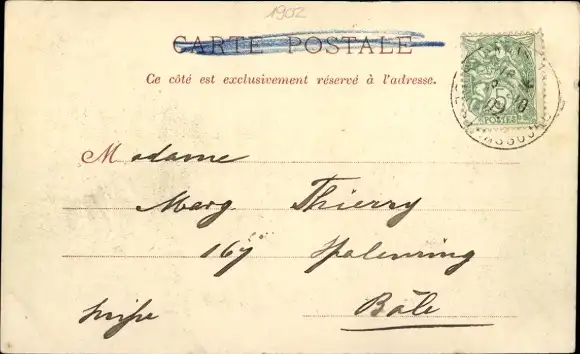 1902
CARTE POSTALE
Ce côté est exclusivement réservé à l'adresse.
5
POSTES
Madame
Marg. Thierry
167 Spalenring
Bâle